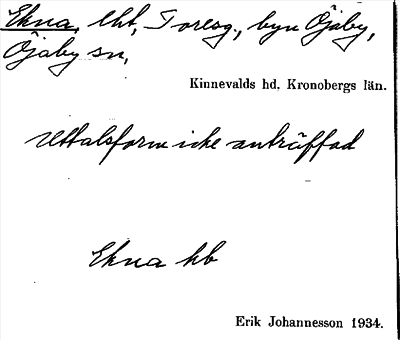 Ekna, lht, Toresg., byn Öjaby,
Öjaby sn,
Kinnevalds hd, Kronobergs län.
Uttalsform icke anträffad
Ekna hb
Erik Johannesson 1934.